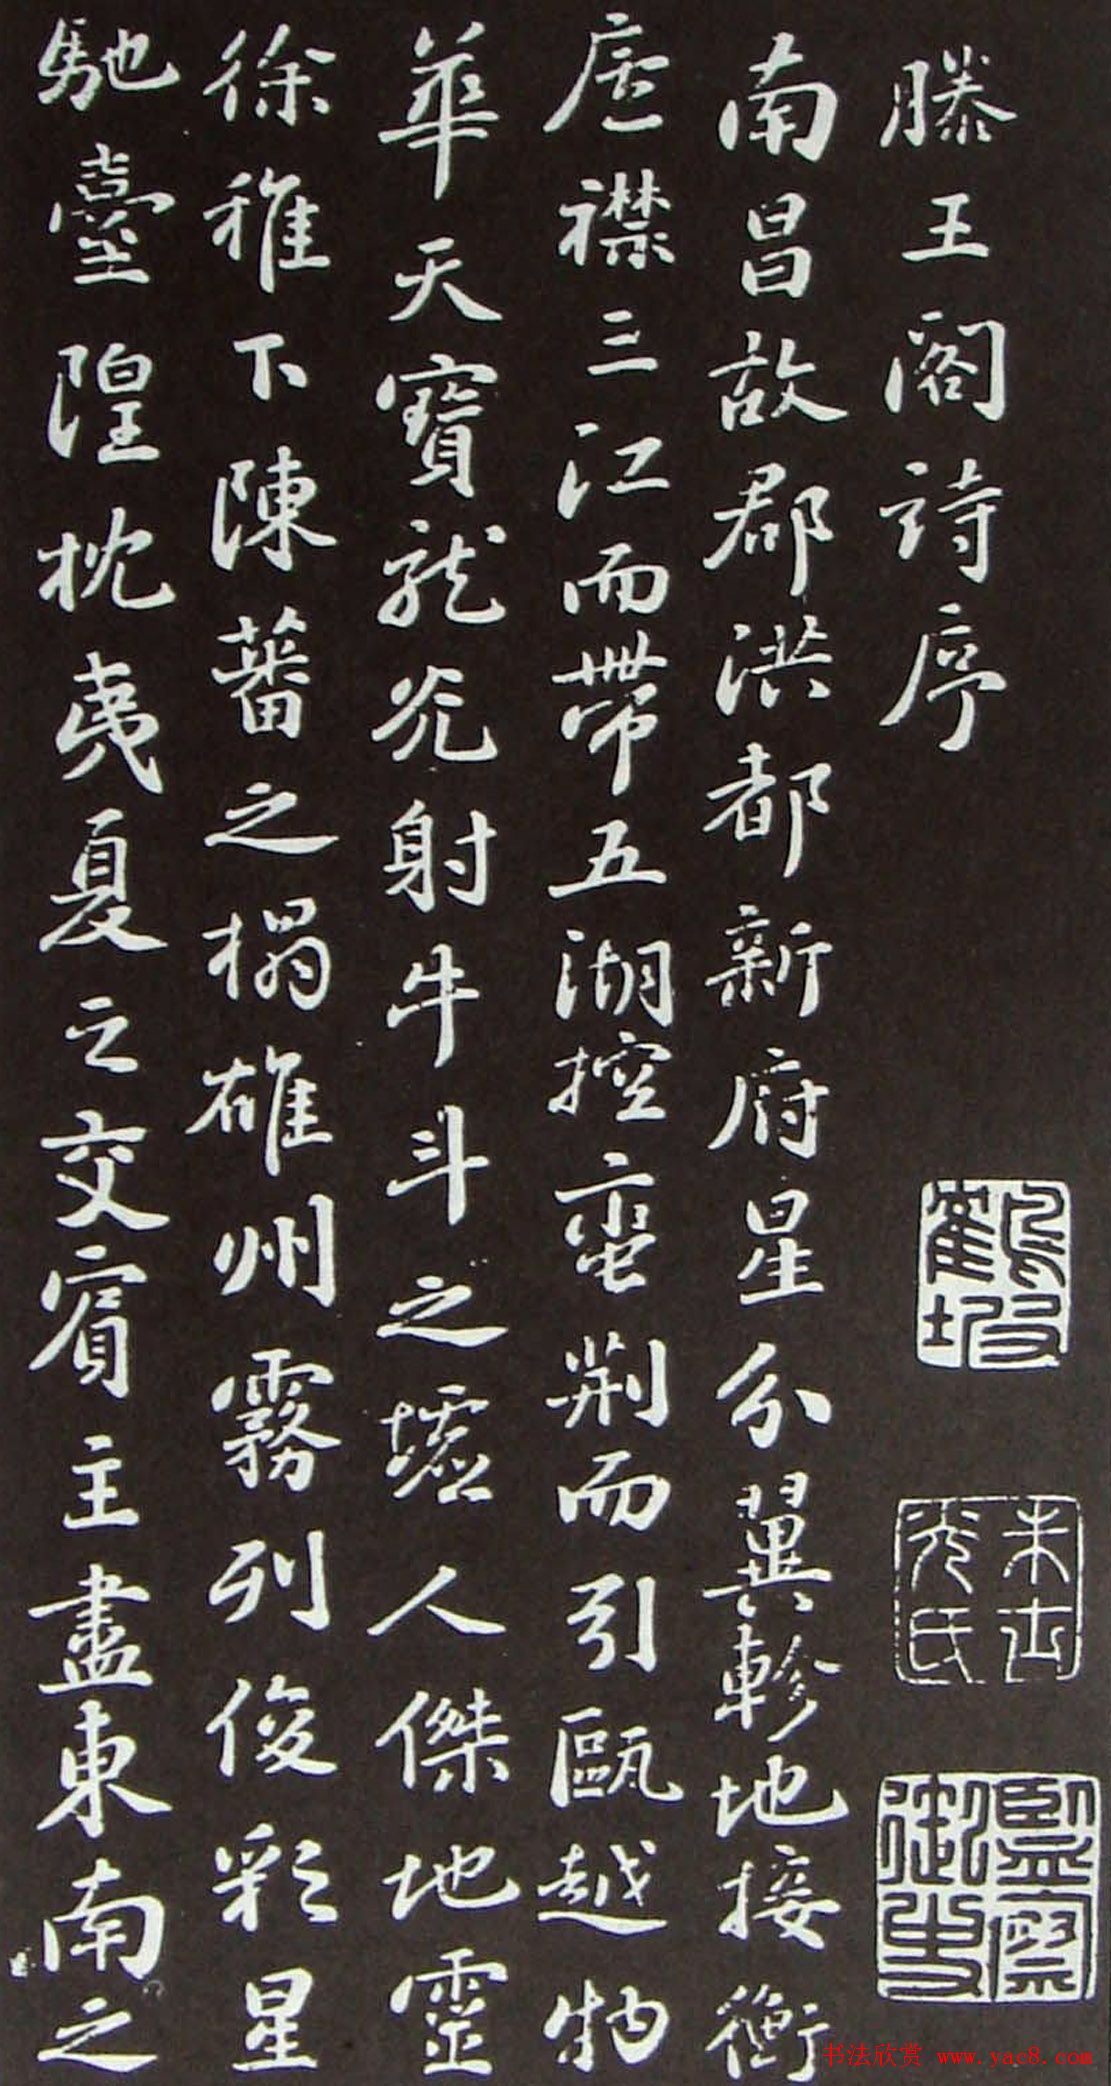 滕王阁詩序
南昌故郡洪都新府星分翼軫地接衡
廬襟三江而帶五湖控蛮荆而引甌越物
華天寶龙光射牛斗之墟人傑地靈
徐稚下陳蕃之榻雄州霧列俊彩星
馳臺隍枕夷夏之交賓主盡東南之
监察御史
书法欣赏 www.yac8.com